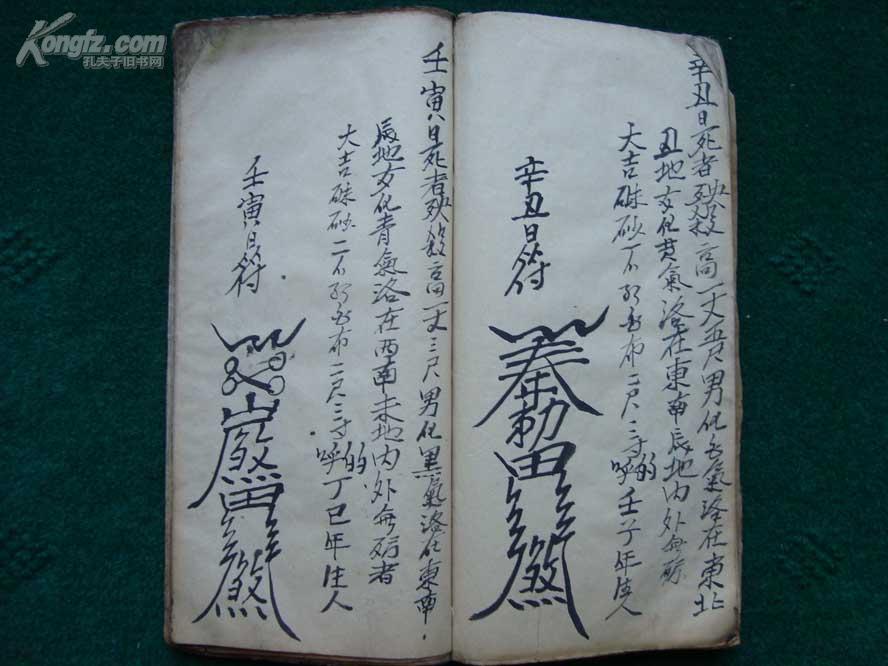 辛丑日死者殃殺高一丈五尺男化白氣落在東北
丑地女化黄氣洛在東南辰地内外無
大吉硃砂一
布二尺三寸
呼的壬子年生人
辛丑日符
奉勅
田
煞
壬寅日死者殃殺高一丈三尺男化黑氣洛在東南
辰地女化青氣洛在西南未地内外無死者
大吉硃砂二
布二尺三寸
呼的丁巳年生人
壬寅日符
田
煞
Kongfz.com
孔夫子旧书网